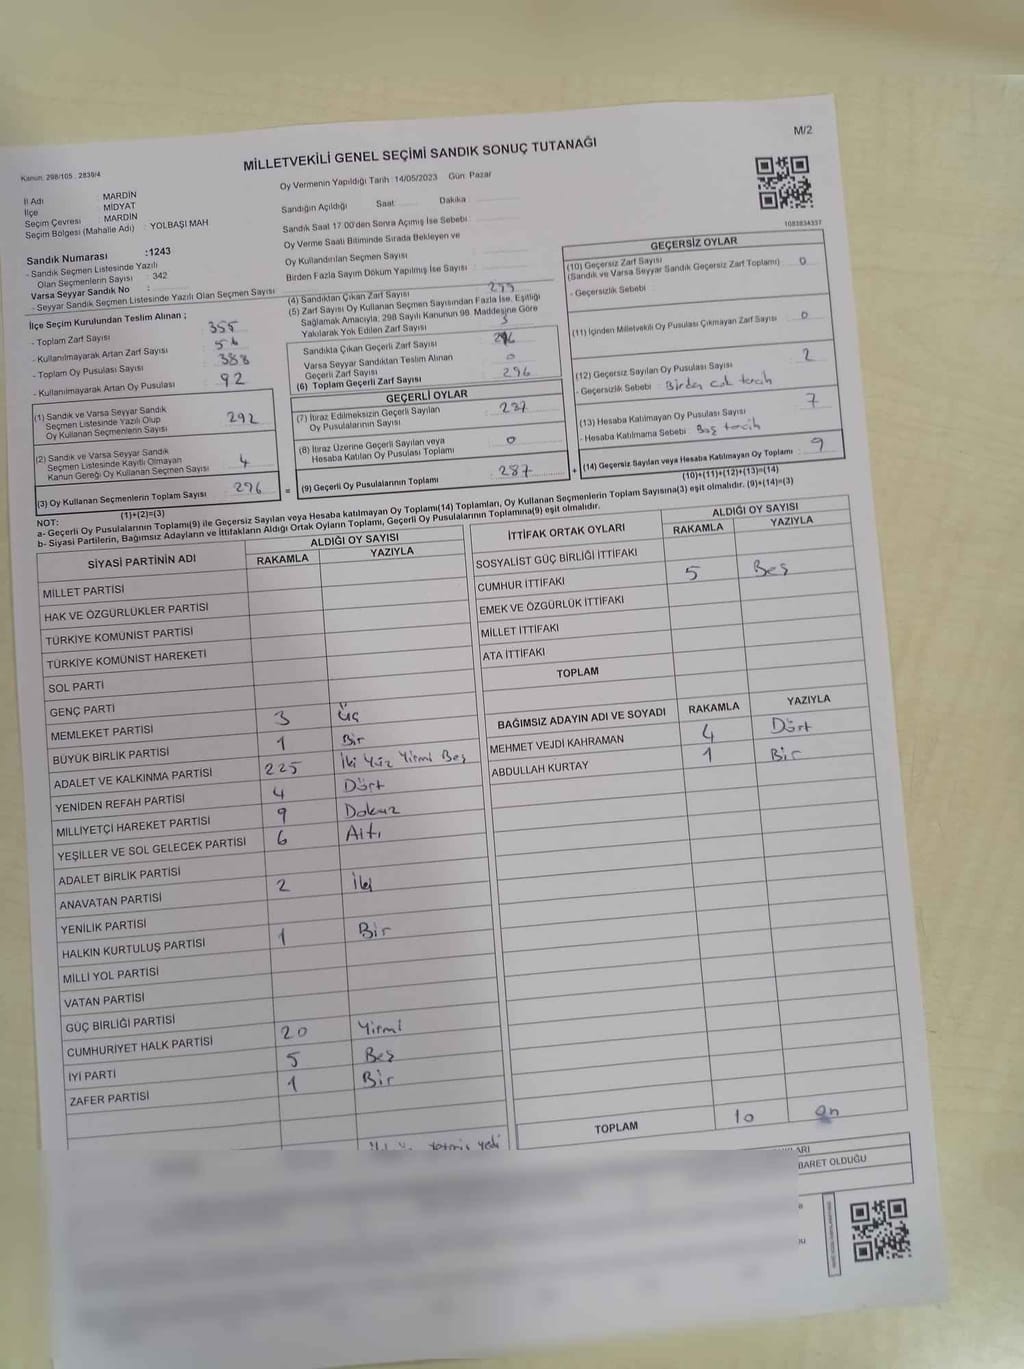 M/2
MİLLETVEKİLİ GENEL SEÇİMİ SANDIK SONUÇ TUTANAĞI
Kanun: 298/105 . 2839/4
İl Adı : MARDİN
İlçe MİDYAT
Seçim Çevresi : MARDİN
Seçim Bölgesi (Mahalle Adı) : YOLBAŞI MAH
Oy Vermenin Yapıldığı Tarih :14/05/2023 Gün Pazar
Sandığın Açıldığı Saat Dakika
Sandık Saat 17.00'den Sonra Açımış İse Sebebi
Oy Verme Saati Bitiminde Sırada Bekleyen ve
Oy Kullandırılan Seçmen Sayısı
Birden Fazla Sayım Döküm Yapılmış İse Sayısı
1083834337
Sandık Numarası :1243
- Sandık Seçmen Listesinde Yazılı
Olan Seçmenlerin Sayısı : 342
Varsa Seyyar Sandık No :
- Seyyar Sandık Seçmen Listesinde Yazılı Olan Seçmen Sayısı
İlçe Seçim Kurulundan Teslim Alınan ;
- Toplam Zarf Sayısı 355
- Kullanılmayarak Artan Zarf Sayısı
- Toplam Oy Pusulası Sayısı 388
- Kullanılmayarak Artan Oy Pusulası 92
(1) Sandık ve Varsa Seyyar Sandık
Seçmen Listesinde Yazılı Olup
Oy Kullanan Seçmenlerin Sayısı 292
(2) Sandık ve Varsa Seyyar Sandık
Seçmen Listesinde Kayıtlı Olmayan
Kanun Gereği Oy Kullanan Seçmen Sayısı 4
(3) Oy Kullanan Seçmenlerin Toplam Sayısı 296
(1)+(2)=(3)
(4) Sandıktan Çıkan Zarf Sayısı 299
(5) Zarf Sayısı Oy Kullanan Seçmen Sayısından Fazla İse, Eşitliği
Sağlamak Amacıyla, 298 Sayılı Kanunun 98. Maddesine Göre
Yakılarak Yok Edilen Zarf Sayısı 3
Sandıkta Çıkan Geçerli Zarf Sayısı 296
Varsa Seyyar Sandıktan Teslim Alınan
Geçerli Zarf Sayısı 0
(6) Toplam Geçerli Zarf Sayısı 296
GEÇERLİ OYLAR
(7) İtiraz Edilmeksizin Geçerli Sayılan
Oy Pusulalarının Sayısı 287
(8) İtiraz Üzerine Geçerli Sayılan veya
Hesaba Katılan Oy Pusulası Toplamı 0
= (9) Geçerli Oy Pusulalarının Toplamı 287 +
GEÇERSİZ OYLAR
(10) Geçersiz Zarf Sayısı
(Sandık ve Varsa Seyyar Sandık Geçersiz Zarf Toplamı) 0
- Geçersizlik Sebebi
(11) İçinden Milletvekili Oy Pusulası Çıkmayan Zarf Sayısı 0
(12) Geçersiz Sayılan Oy Pusulası Sayısı 2
- Geçersizlik Sebebi : Birden çok tercih
(13) Hesaba Katılmayan Oy Pusulası Sayısı 7
- Hesaba Katılmama Sebebi : Boş tercih
(14) Geçersiz Sayılan veya Hesaba Katılmayan Oy Toplamı 9
(10)+(11)+(12)+(13)=(14)
NOT:
a- Geçerli Oy Pusulalarının Toplamı(9) ile Geçersiz Sayılan veya Hesaba katılmayan Oy Toplamı(14) Toplamları, Oy Kullanan Seçmenlerin Toplam Sayısına(3) eşit olmalıdır. (9)+(14)=(3)
b- Siyasi Partilerin, Bağımsız Adayların ve İttifakların Aldığı Ortak Oyların Toplamı, Geçerli Oy Pusulalarının Toplamına(9) eşit olmalıdır.
SİYASİ PARTİNİN ADI ALDIĞI OY SAYISI
RAKAMLA YAZIYLA
MİLLET PARTİSİ
HAK VE ÖZGÜRLÜKLER PARTİSİ
TÜRKİYE KOMÜNİST PARTİSİ
TÜRKİYE KOMÜNİST HAREKETİ
SOL PARTİ
GENÇ PARTİ
MEMLEKET PARTİSİ 3 Üç
BÜYÜK BİRLİK PARTİSİ 1 Bir
ADALET VE KALKINMA PARTİSİ 225 İki Yüz Yirmi Beş
YENİDEN REFAH PARTİSİ 4 Dört
MİLLİYETÇİ HAREKET PARTİSİ 9 Dokuz
YEŞİLLER VE SOL GELECEK PARTİSİ 6 Altı
ADALET BİRLİK PARTİSİ
ANAVATAN PARTİSİ 2 İki
YENİLİK PARTİSİ
HALKIN KURTULUŞ PARTİSİ 1 Bir
MİLLİ YOL PARTİSİ
VATAN PARTİSİ
GÜÇ BİRLİĞİ PARTİSİ
CUMHURİYET HALK PARTİSİ 20 Yirmi
İYİ PARTİ 5 Beş
ZAFER PARTİSİ 1 Bir
yetmiş yedi
İTTİFAK ORTAK OYLARI ALDIĞI OY SAYISI
RAKAMLA YAZIYLA
SOSYALİST GÜÇ BİRLİĞİ İTTİFAKI
CUMHUR İTTİFAKI 5 Beş
EMEK VE ÖZGÜRLÜK İTTİFAKI
MİLLET İTTİFAKI
ATA İTTİFAKI
TOPLAM
BAĞIMSIZ ADAYIN ADI VE SOYADI RAKAMLA YAZIYLA
MEHMET VEJDİ KAHRAMAN 4 Dört
ABDULLAH KURTAY 1 Bir
TOPLAM 10 On
BARET OLDUĞU